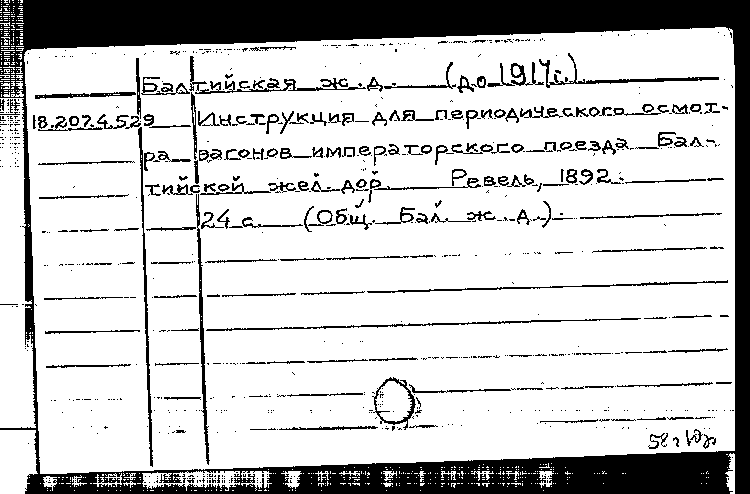 Балтийская ж.д. (до 1917г.)
18.207.4.529 Инструкция для периодического осмот-
ра вагонов императорского поезда Бал-
тийской жел. дор. Ревель, 1892.
24 с. (Общ. Бал. ж. д.).